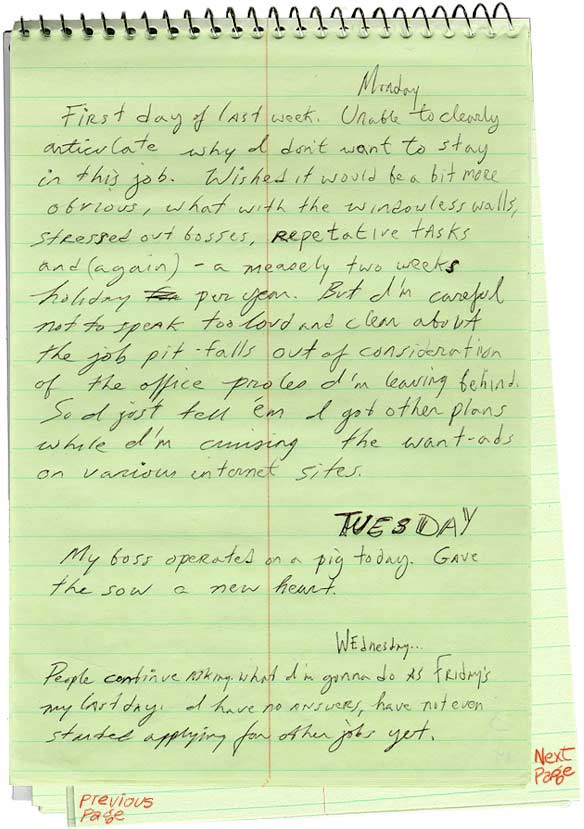 Monday
First day of last week. Unable to clearly
articulate why I don't want to stay
in this job. Wished it would be a bit more
obvious, what with the windowless walls,
stressed out bosses, repetative tasks
and (again) - a measely two weeks
holiday per year. But I'm careful
not to speak too loud and clear about
the job pit-falls out of consideration
of the office proles I'm leaving behind.
So I just tell 'em I got other plans
while I'm cruising the want-ads
on various internet sites.
TUESDAY
My boss operates on a pig today. Gave
the sow a new heart.
Wednesday...
People continue asking what I'm gonna do as Friday's
my last day. I have no answers, have not even
started applying for other jobs yet.
Next
Page
Previous
Page